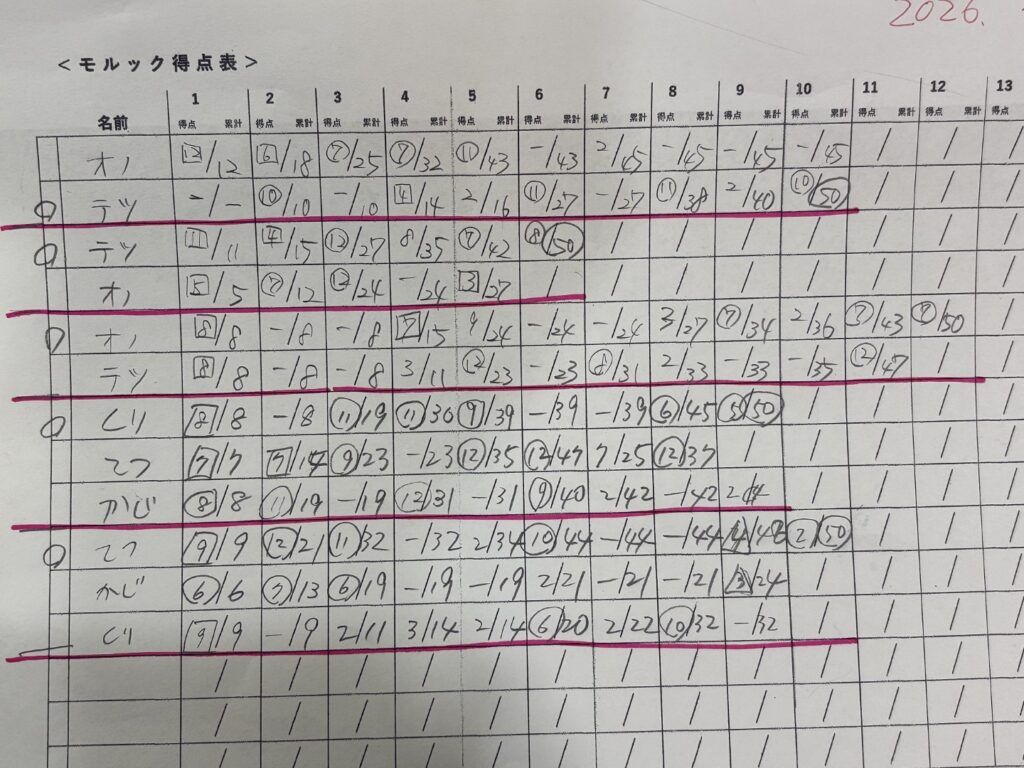 2026.
＜モルック得点表＞
1 2 3 4 5 6 7 8 9 10 11 12 13
名前 得点 累計 得点 累計 得点 累計 得点 累計 得点 累計 得点 累計 得点 累計 得点 累計 得点 累計 得点 累計 得点 累計 得点 累計 得点
オノ 12/12 6/18 ⑦/25 ⑦/32 ⑩/43 -/43 2/45 -/45 -/45 -/45 / / /
○ テツ -/- ⑩/10 -/10 4/14 2/16 ⑪/27 -/27 ⑪/38 2/40 ⑩/50 / / /
○ テツ 11/11 4/15 ⑫/27 8/35 ⑦/42 ⑧/50 / / / / / / /
オノ 5/5 ⑦/12 ⑫/24 -/24 3/27 / / / / / / / /
○ オノ 8/8 -/8 -/8 7/15 9/24 -/24 -/24 3/27 ⑦/34 2/36 ⑦/43 ⑦/50 /
テツ 8/8 -/8 -/8 3/11 ⑫/23 -/23 ⑧/31 2/33 -/33 -/35 ⑫/47 / /
○ くり 8/8 -/8 ⑪/19 ⑪/30 ⑨/39 -/39 -/39 ⑥/45 ⑤/50 / / / /
てつ 7/7 7/14 ⑨/23 -/23 ⑫/35 ⑫/47 7/25 ⑫/37 / / / / /
かじ ⑧/8 ⑪/19 -/19 ⑫/31 -/31 ⑨/40 2/42 -/42 2/4 / / / /
○ てつ 9/9 ⑫/21 ⑪/32 -/32 2/34 ⑩/44 -/44 -/44 4/48 ②/50 / / /
かじ ⑥/6 ⑦/13 ⑥/19 -/19 -/19 2/21 -/21 -/21 3/24 / / / /
くり 9/9 -/9 2/11 3/14 2/14 ⑥/20 2/22 ⑩/32 -/32 / / / /
/ / / / / / / / / / / / /
/ / / / / / / / / / / / /
/ / / / / / / / / / / / /